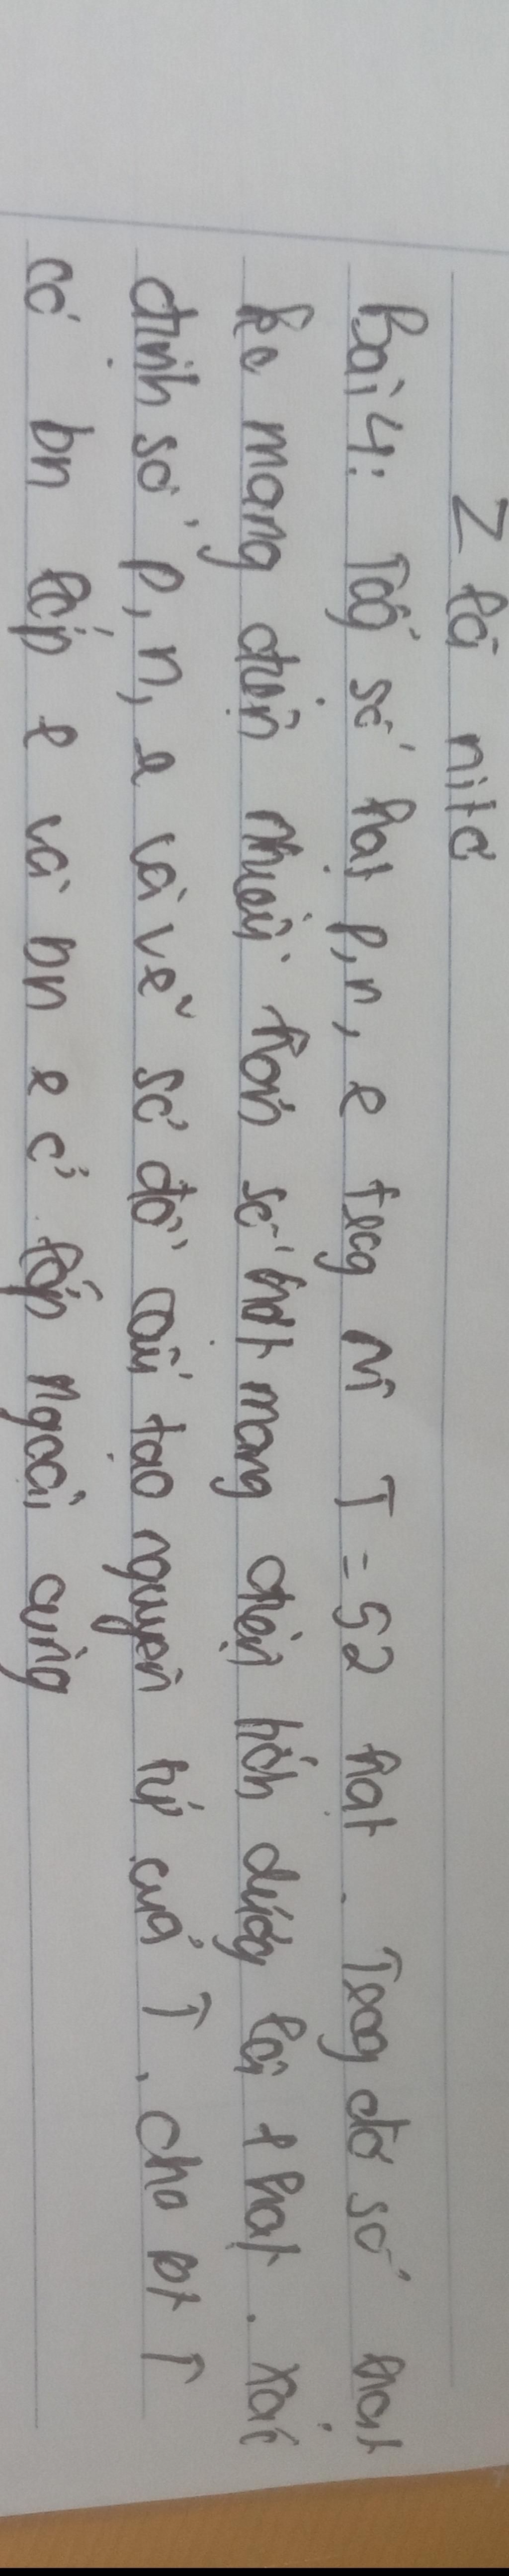 Z là nitơ
Bài 4: Tổg số hạt p, n, e trog NT T = 52 hạt. Trog đó số hạt
ko mang điện nhiều hơn số hạt mang điện tích dươg là 1 hạt. Xác
định số p, n, e và vẽ sơ đồ cấu tạo nguyên tử của T. cho bt T
có bn lớp e và bn e ở lớp ngoài cùng